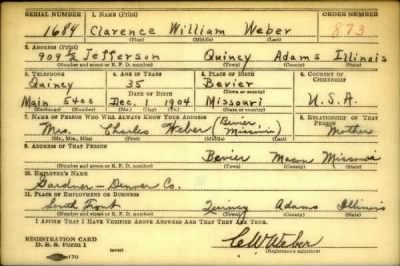 SERIAL NUMBER 1. NAME (Print) ORDER NUMBER
1684 Clarence William Weber 873
(First) (Middle) (Last)
2. ADDRESS (Print)
909 1/2 Jefferson Quincy Adams Illinois
(Number and street or R. F. D. number) (Town) (County) (State)
3. TELEPHONE 4. AGE IN YEARS 5. PLACE OF BIRTH 6. COUNTRY OF CITIZENSHIP
Quincy 35 Bevier
DATE OF BIRTH (Town or county)
Main 5400 Dec. 1 1904 Missouri U.S.A.
(Exchange) (No.) (Mo.) (Day) (Yr.) (State or country)
7. NAME OF PERSON WHO WILL ALWAYS KNOW YOUR ADDRESS 8. RELATIONSHIP OF THAT PERSON
Mrs. Charles Weber (Bevier Missouri) Mother
(Mr., Mrs., Miss) (First) (Middle) (Last)
9. ADDRESS OF THAT PERSON
Bevier Macon Missouri
(Number and street or R. F. D. number) (Town) (County) (State)
10. EMPLOYER'S NAME
Gardner-Denver Co.
11. PLACE OF EMPLOYMENT OR BUSINESS
South Front Quincy Adams Illinois
(Number and street or R. F. D. number) (Town) (County) (State)
I AFFIRM THAT I HAVE VERIFIED ABOVE ANSWERS AND THAT THEY ARE TRUE.
REGISTRATION CARD
D. S. S. Form 1 (over) C W Weber
(Registrant's signature)